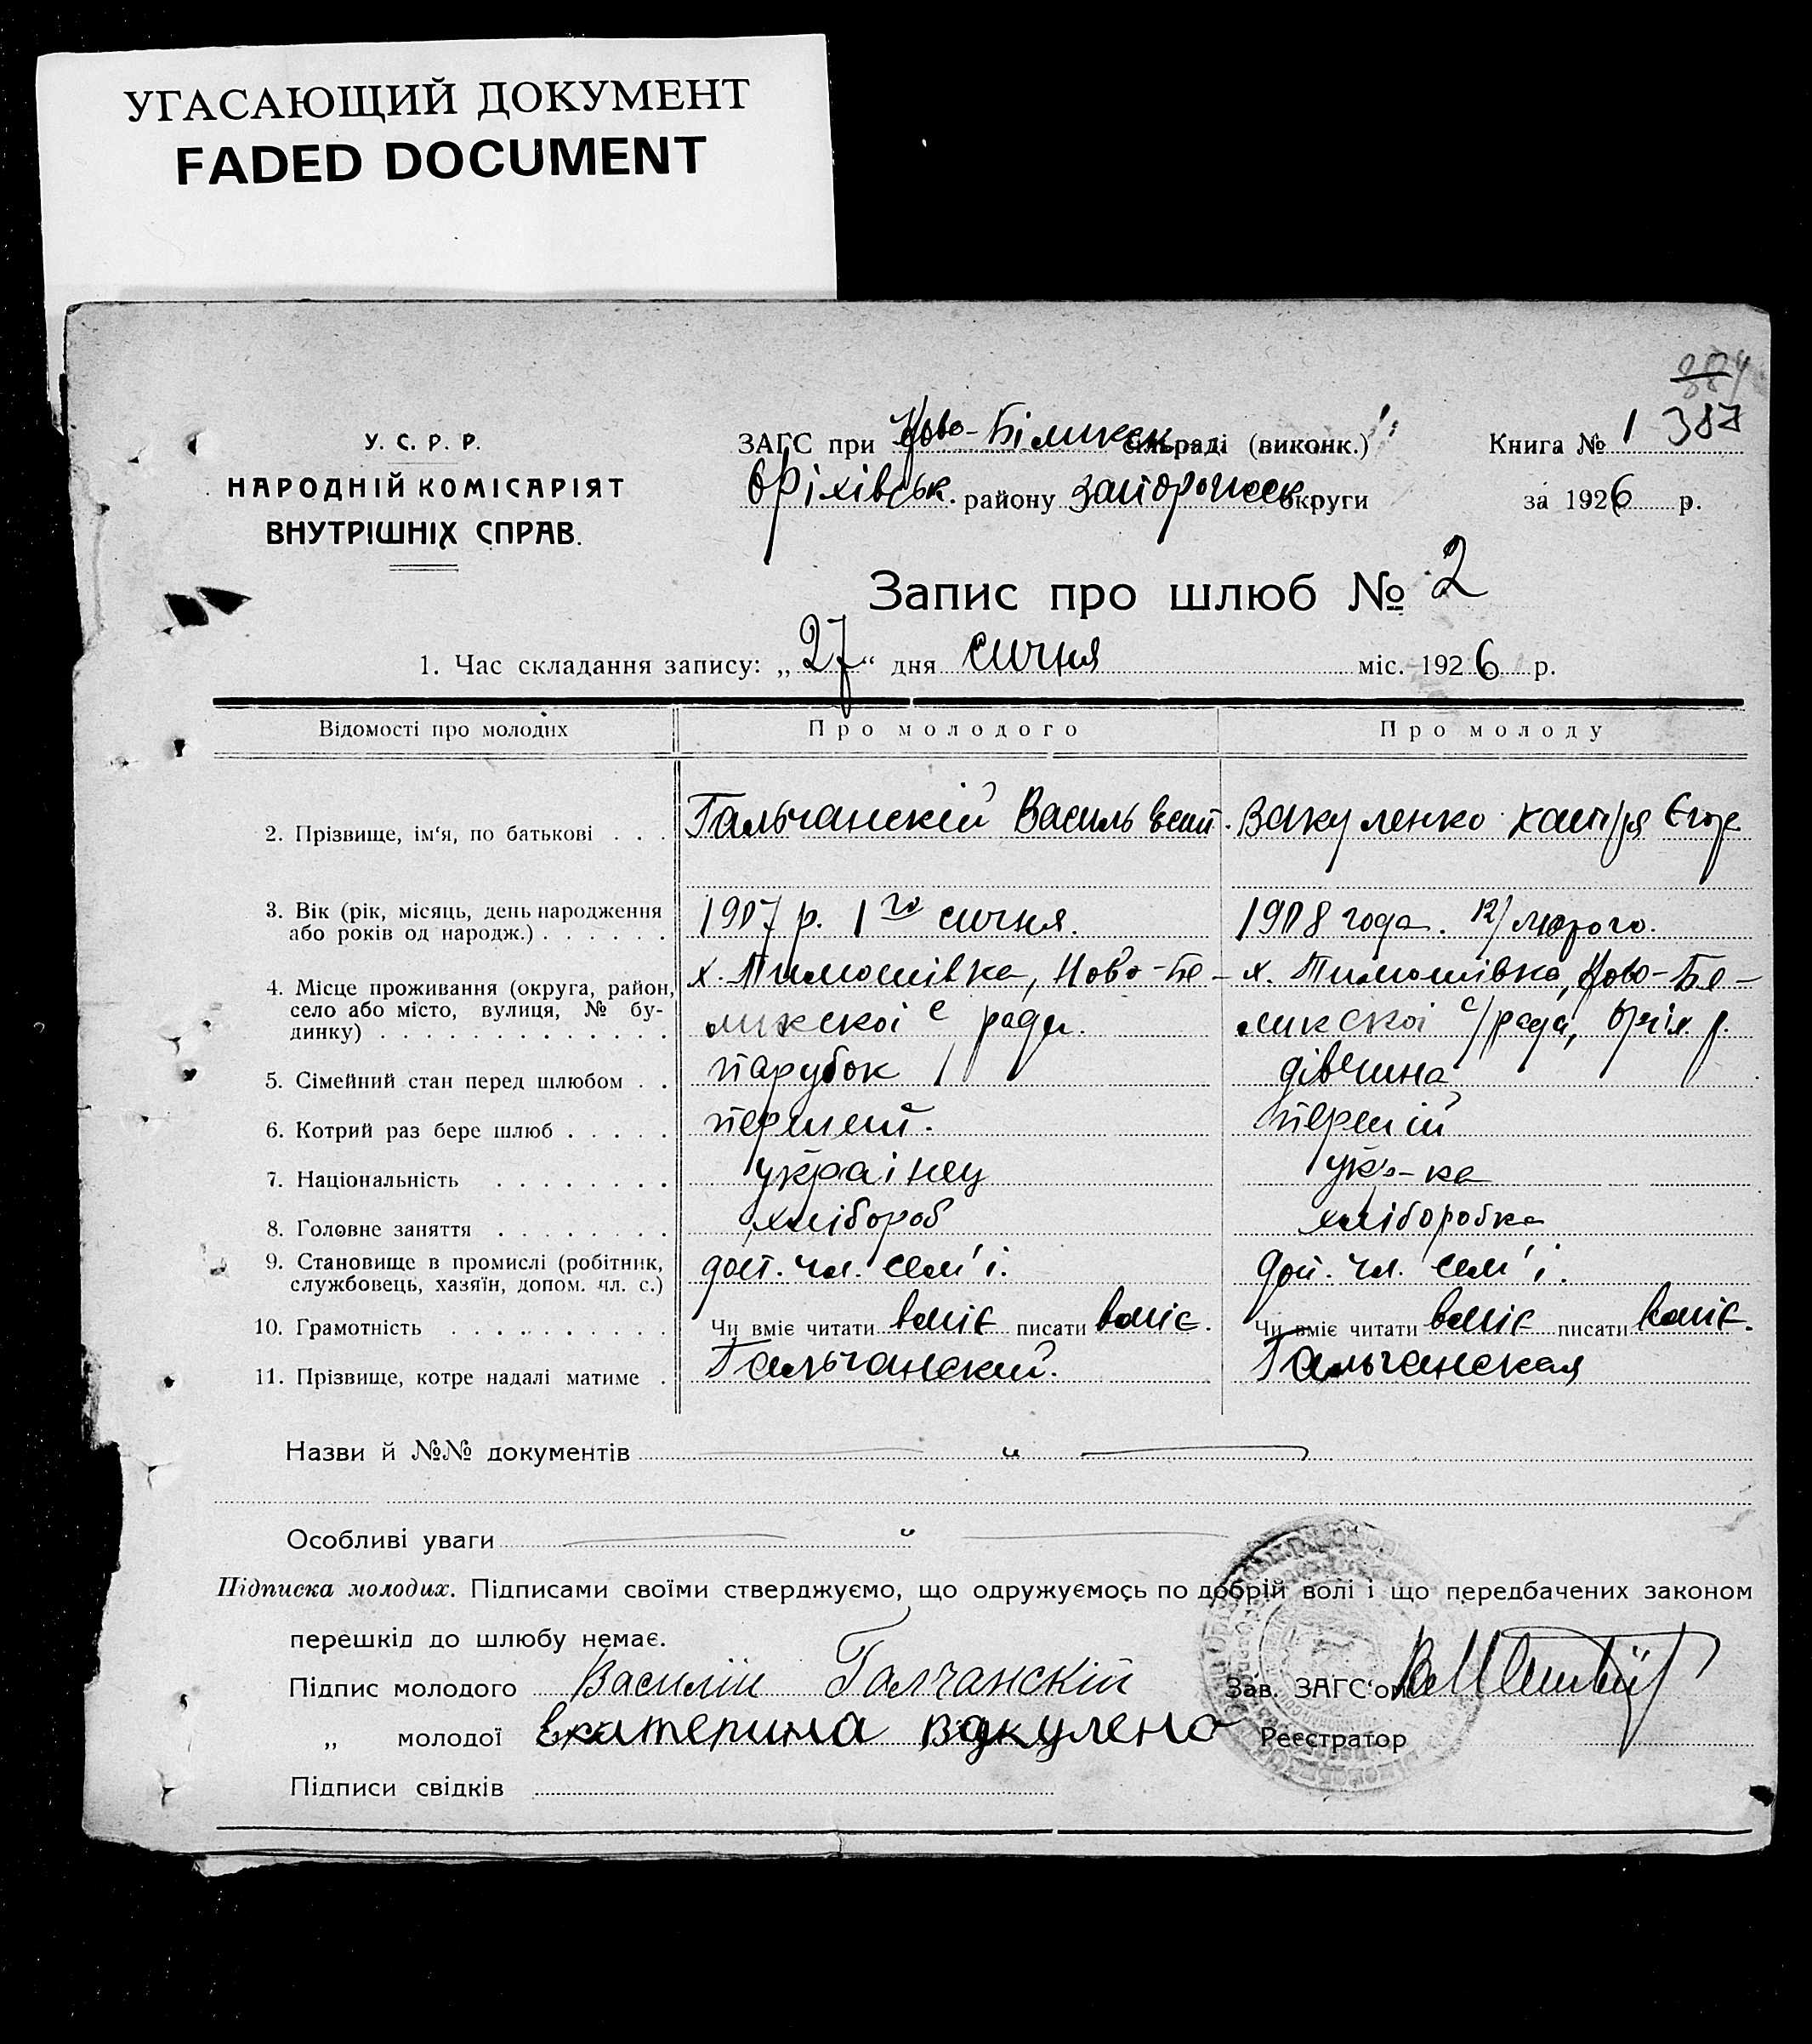 УГАСАЮЩИЙ ДОКУМЕНТ
FADED DOCUMENT
384
У. С. Р. Р.
НАРОДНІЙ КОМІСАРІЯТ
ВНУТРІШНІХ СПРАВ.
ЗАГС при Ново-Біликск. сільраді (виконк.)
Книга № 1 387
Оріхівськ. району Запорожск. округи
за 1926 р.
Запис про шлюб № 2
1. Час складання запису: „27“ дня сичня міс. 1926 р.
Відомості про молодих
Про молодого
Про молоду
2. Прізвище, ім'я, по батькові . . .
Гальчанскій Василь
Вакуленко Катря Єгор
3. Вік (рік, місяць, день народження або років од народж.) . . . . . .
1907 р. 1го сичня.
1908 года. 12/лютого.
4. Місце проживання (округа, район, село або місто, вулиця, № будинку) . . . . . . . . . . . .
х. Тимошівка, Ново-Бе-
ликскої с/ради.
х. Тимошівка, Ново-Бе-
ликскої с/ради, Оріх. р.
5. Сімейний стан перед шлюбом . .
парубок
дівчина
6. Котрий раз бере шлюб . . . . .
перший.
перший
7. Національність . . . . . . . .
українец
укр-ка
8. Головне заняття . . . . . . . .
хлібороб
хліборобка
9. Становище в промислі (робітник, службовець, хазяїн, допом. чл. с.)
доп. чл. сем'ї.
доп. чл. сем'ї.
10. Грамотність . . . . . . . . . .
Чи вміє читати вміє писати вміє.
Чи вміє читати вміє писати вміє.
11. Прізвище, котре надалі матиме .
Гальчанский.
Гальчанская
Назви й №№ документів — " —
Особливі уваги — " —
Підписка молодих. Підписами своїми стверджуємо, що одружуємось по добрій волі і що передбачених законом
перешкід до шлюбу немає.
Підпис молодого Василий Галчанскій
Зав. ЗАГС'ом
„ молодої Екатерина Вакулено
Реєстратор
Підписи свідків